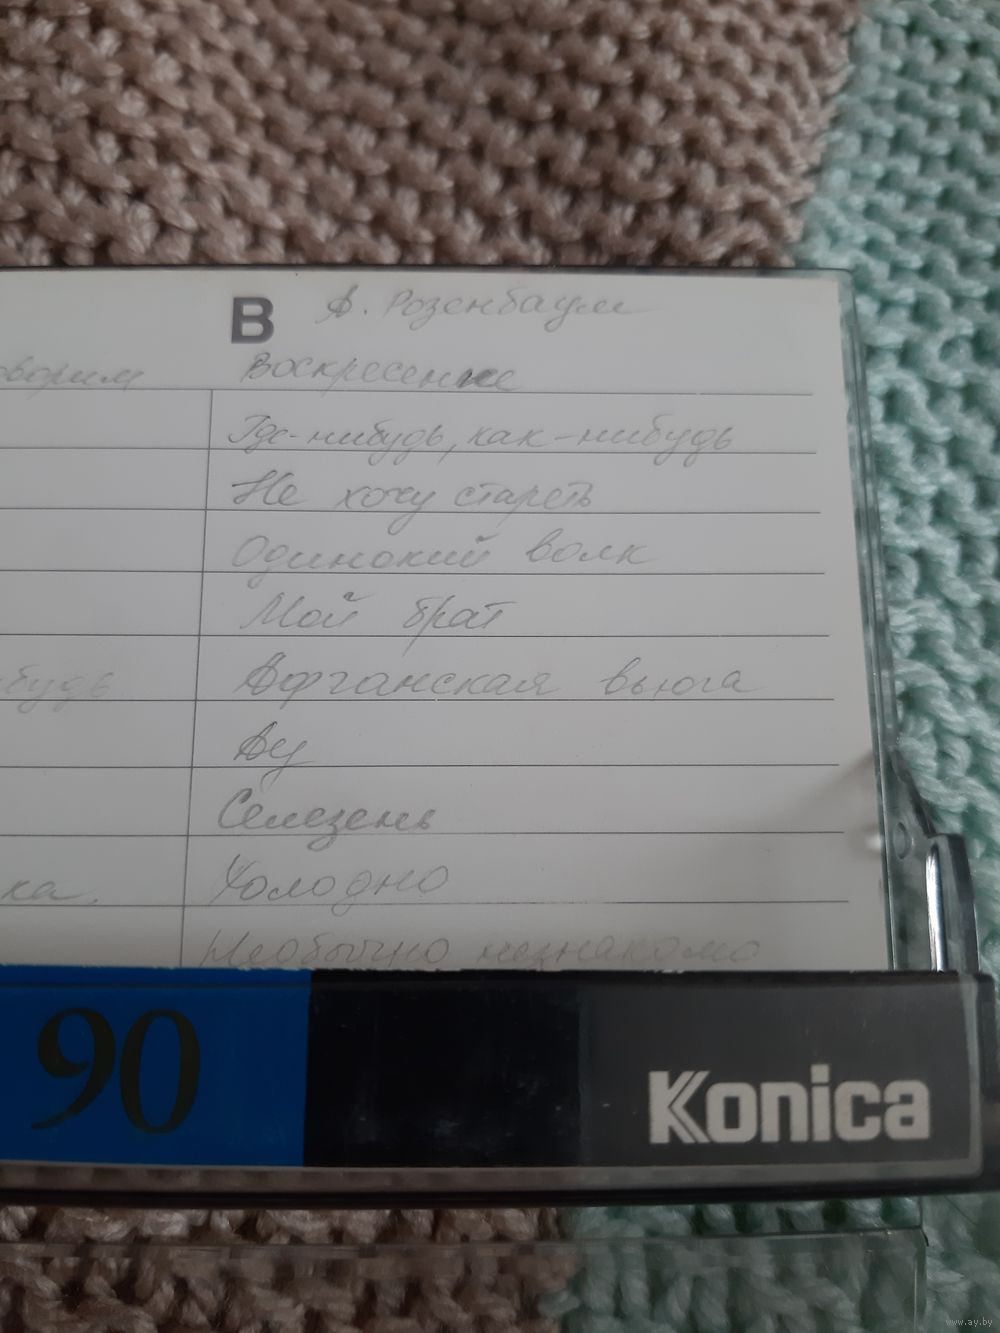 B А. Розенбаум
оворим Воскресение
Где-нибудь, как-нибудь
Не хочу стареть
Одинокий волк
Мой брат
будь Афганская вьюга
Ау
Селезень
ка. Холодно
Необычно незнакомо
90
Konica
www.ay.by